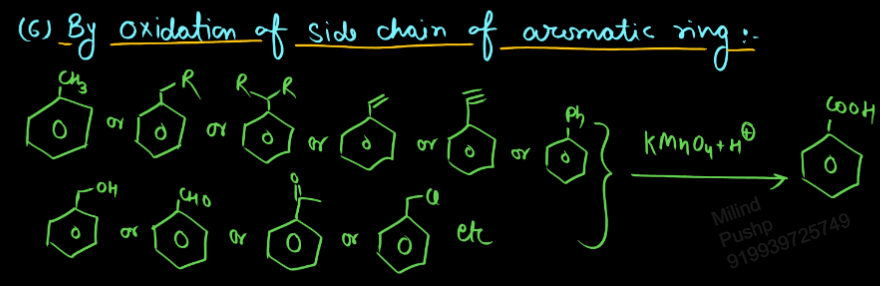 (6) By oxidation of side chain of aromatic ring :-
CH3 or R or R R or or or Ph
KMnO4 + H⊕
COOH
OH or CHO or O or Cl etc
Milind
Pushp
919939725749